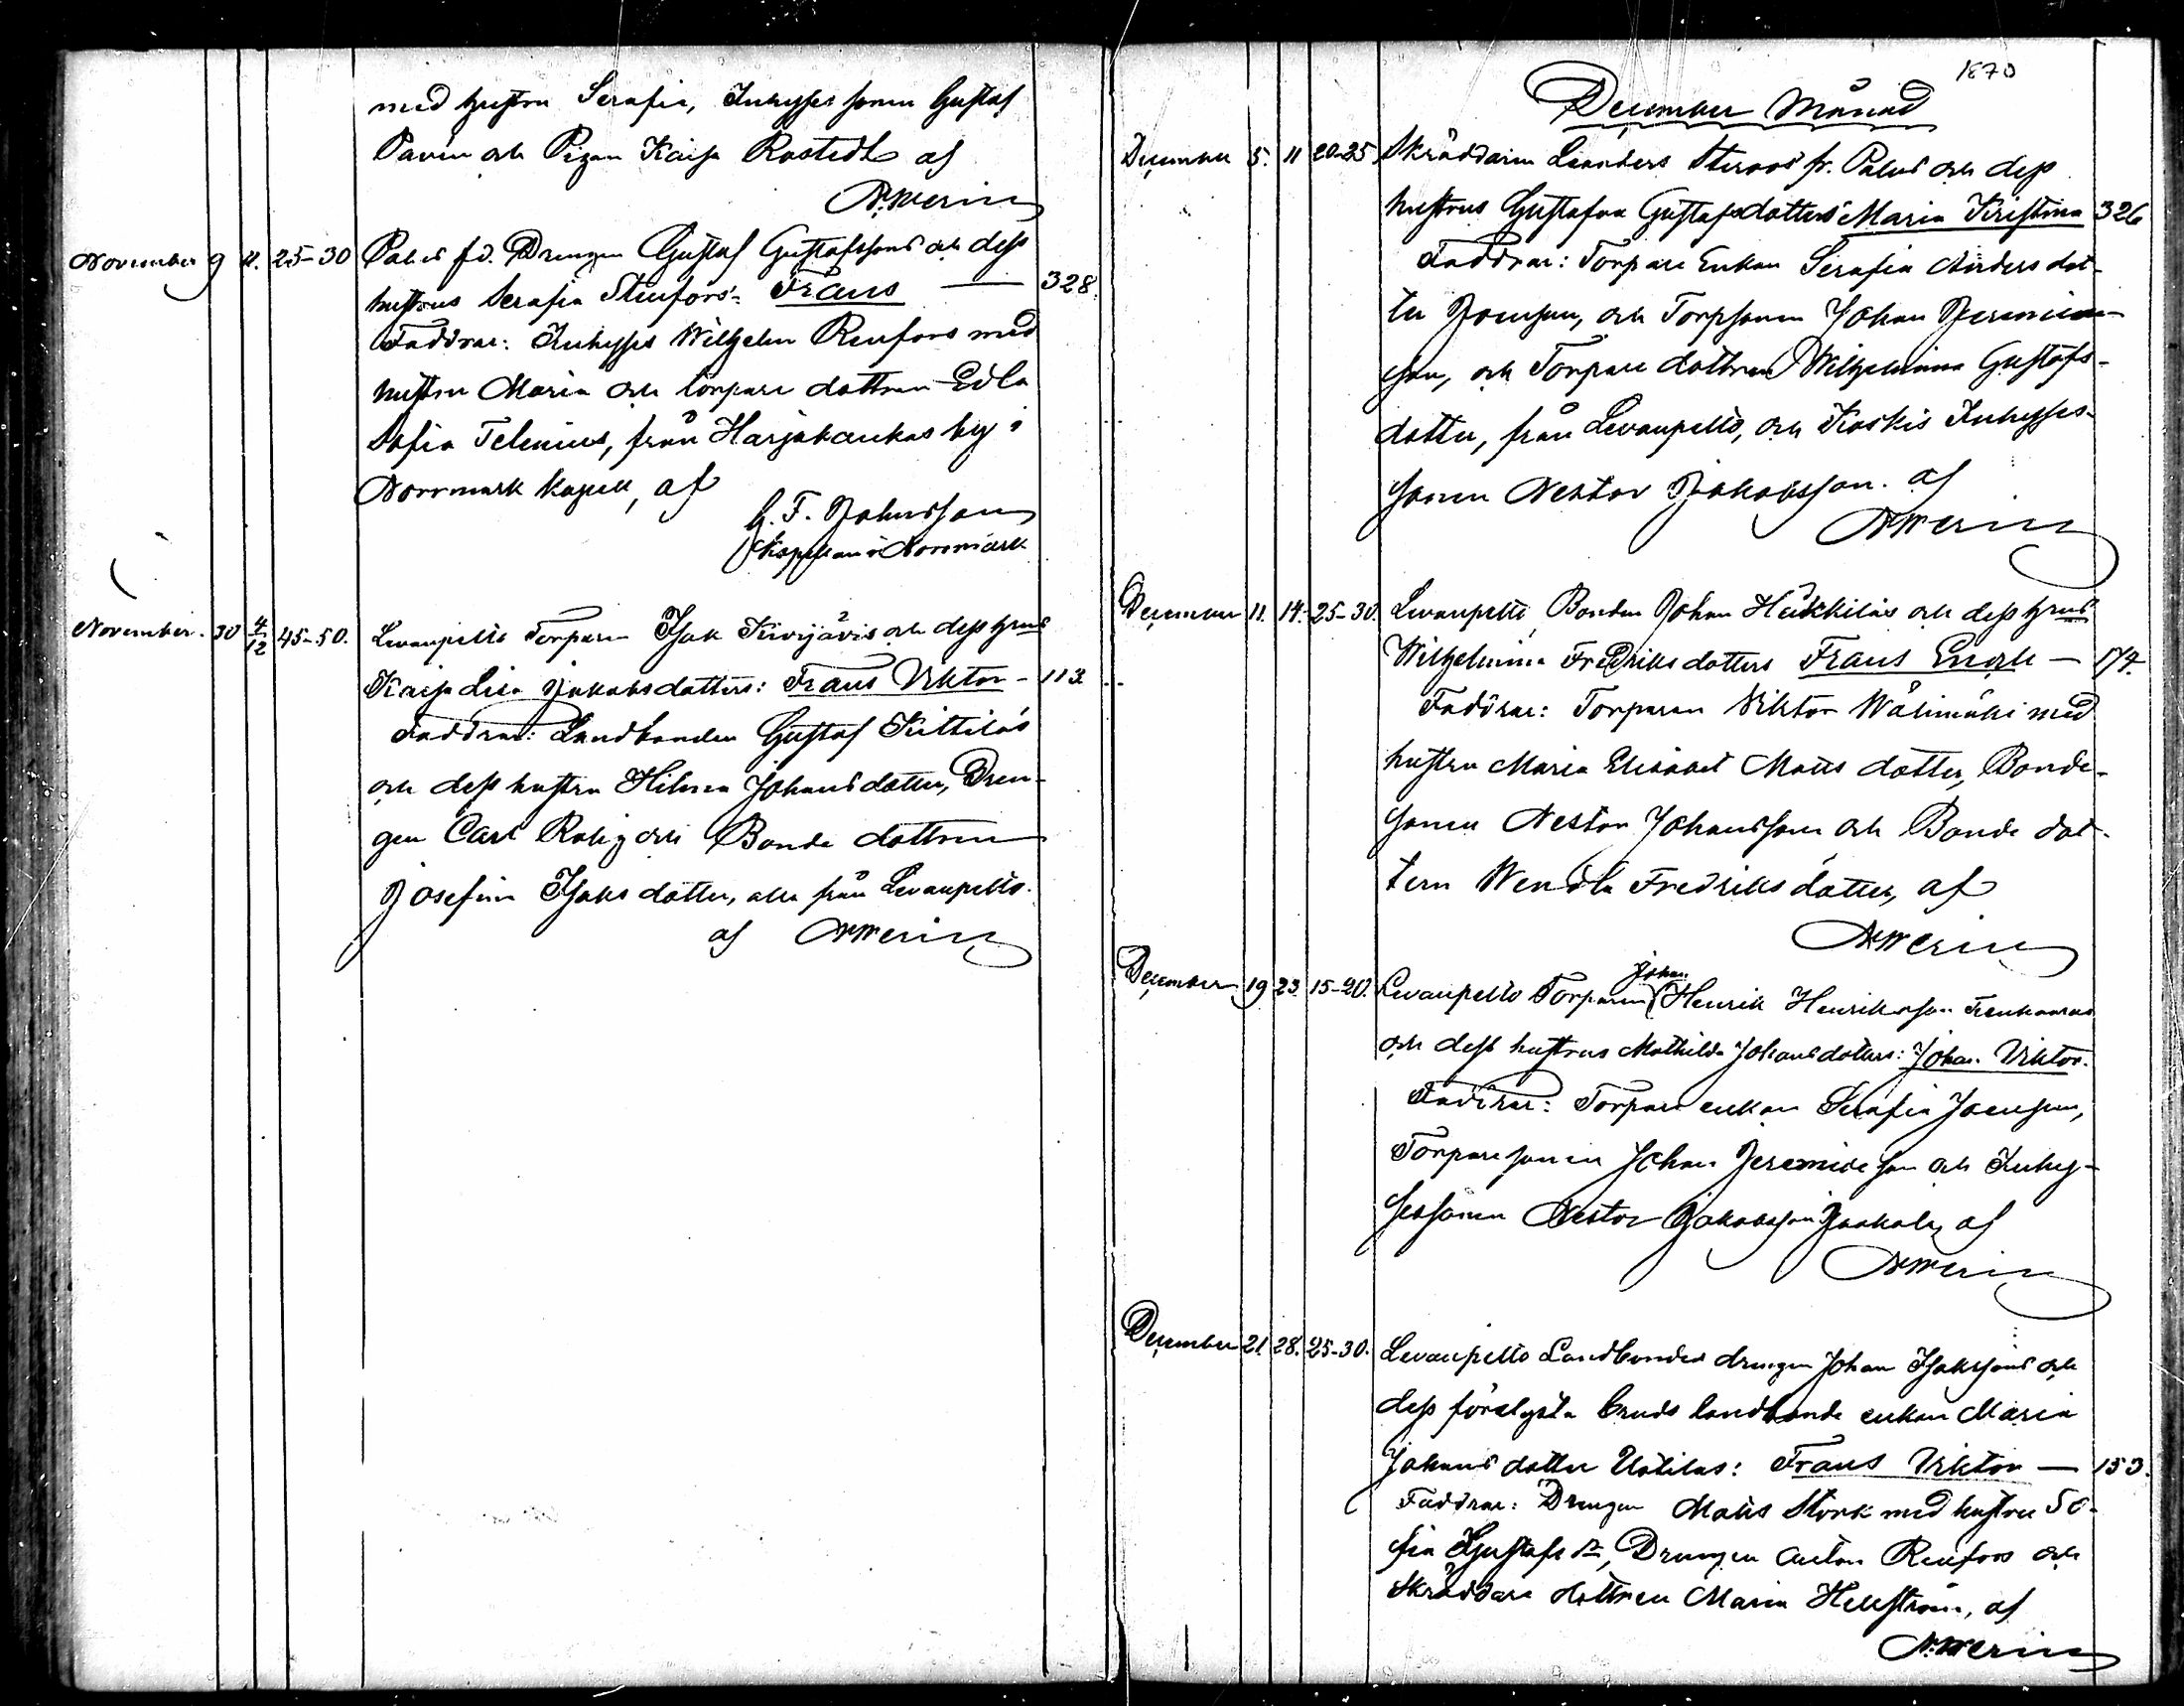 med hustru Serafia, Inhyses sonen Gustaf
Pavén och Pigan Kaisa Rostedt af
A. Werin
November 9 11. 25-30 Palus fd. Drengen Gustaf Gustafssons och dess
hustrus Serafia Stenfors: Frans — 328.
Faddrar: Inhyses Wilhelm Renfors med
hustru Maria och torpare dottren Edla
Sofia Telenius, från Harjakankas by i
Norrmark kapell, af
G. F. Johnsson
Kapellan i Norrmark
November. 30 4/12 45-50. Levanpelto Torparen Isak Kivijävis och dess hrus
Kaisa Lisa Jakobsdotters: Frans Viktor - 113
Faddrar: Landbonden Gustaf Kittiläs
och dess hustru Hilma Johansdotter, Dren-
gen Carl Rohig och Bonde dottren
Josefina Isaksdotter, alla från Levanpelto.
af A Werin
1870
December Månad
December 5. 11 20-25 Skräddaren Leanders Sternos fr. Palus och dess
hustrus Gustafva Gustafsdotters Maria Kristina 326
Faddrar: Torpare Enkan Serafia Andersdot-
ter Joensuu, och Torpsonen Johan Jeremias-
son, och Torpare dottren Wilhelmina Gustafs-
dotter, från Levanpelto, och Koskis Inhyses-
sonen Nestor Jakobsson. af
A Werin
December 11. 14. 25-30. Levanpelto Bonden Johan Heikkiläs och dess hrus
Wilhelmina Fredriksdotters Frans Enok — 174.
Faddrar: Torparen Viktor Wälimäki med
hustru Maria Elisabet Mattsdotter, Bonde-
sonen Nestor Johansson och Bonde dot-
tern Wendla Fredriksdotter, af
A Werin
December 19 23. 15-20. Levanpelto Torparen Johan Henrik Henriksson
och dess hustrus Mathilda Johansdotters: Johan Viktor.
Faddrar: Torpare enkan Serafia Joensuu,
Torparesonen Johan Jeremiasson och Inhy-
sessonen Nestor Jakobsson Jaakola, af
A Werin
December 21. 28. 25-30. Levanpelto Landbondes drengen Johan Isakssons och
dess förelysta bruds landbonde enkan Maria
Johansdotter Uotilas: Frans Viktor — 153.
Faddrar: Drengen Matts Stork med hustru So-
fia Gustafs dr, Drengen Anton Renfors och
Skräddare dottren Maria Hellström, af
A. Werin